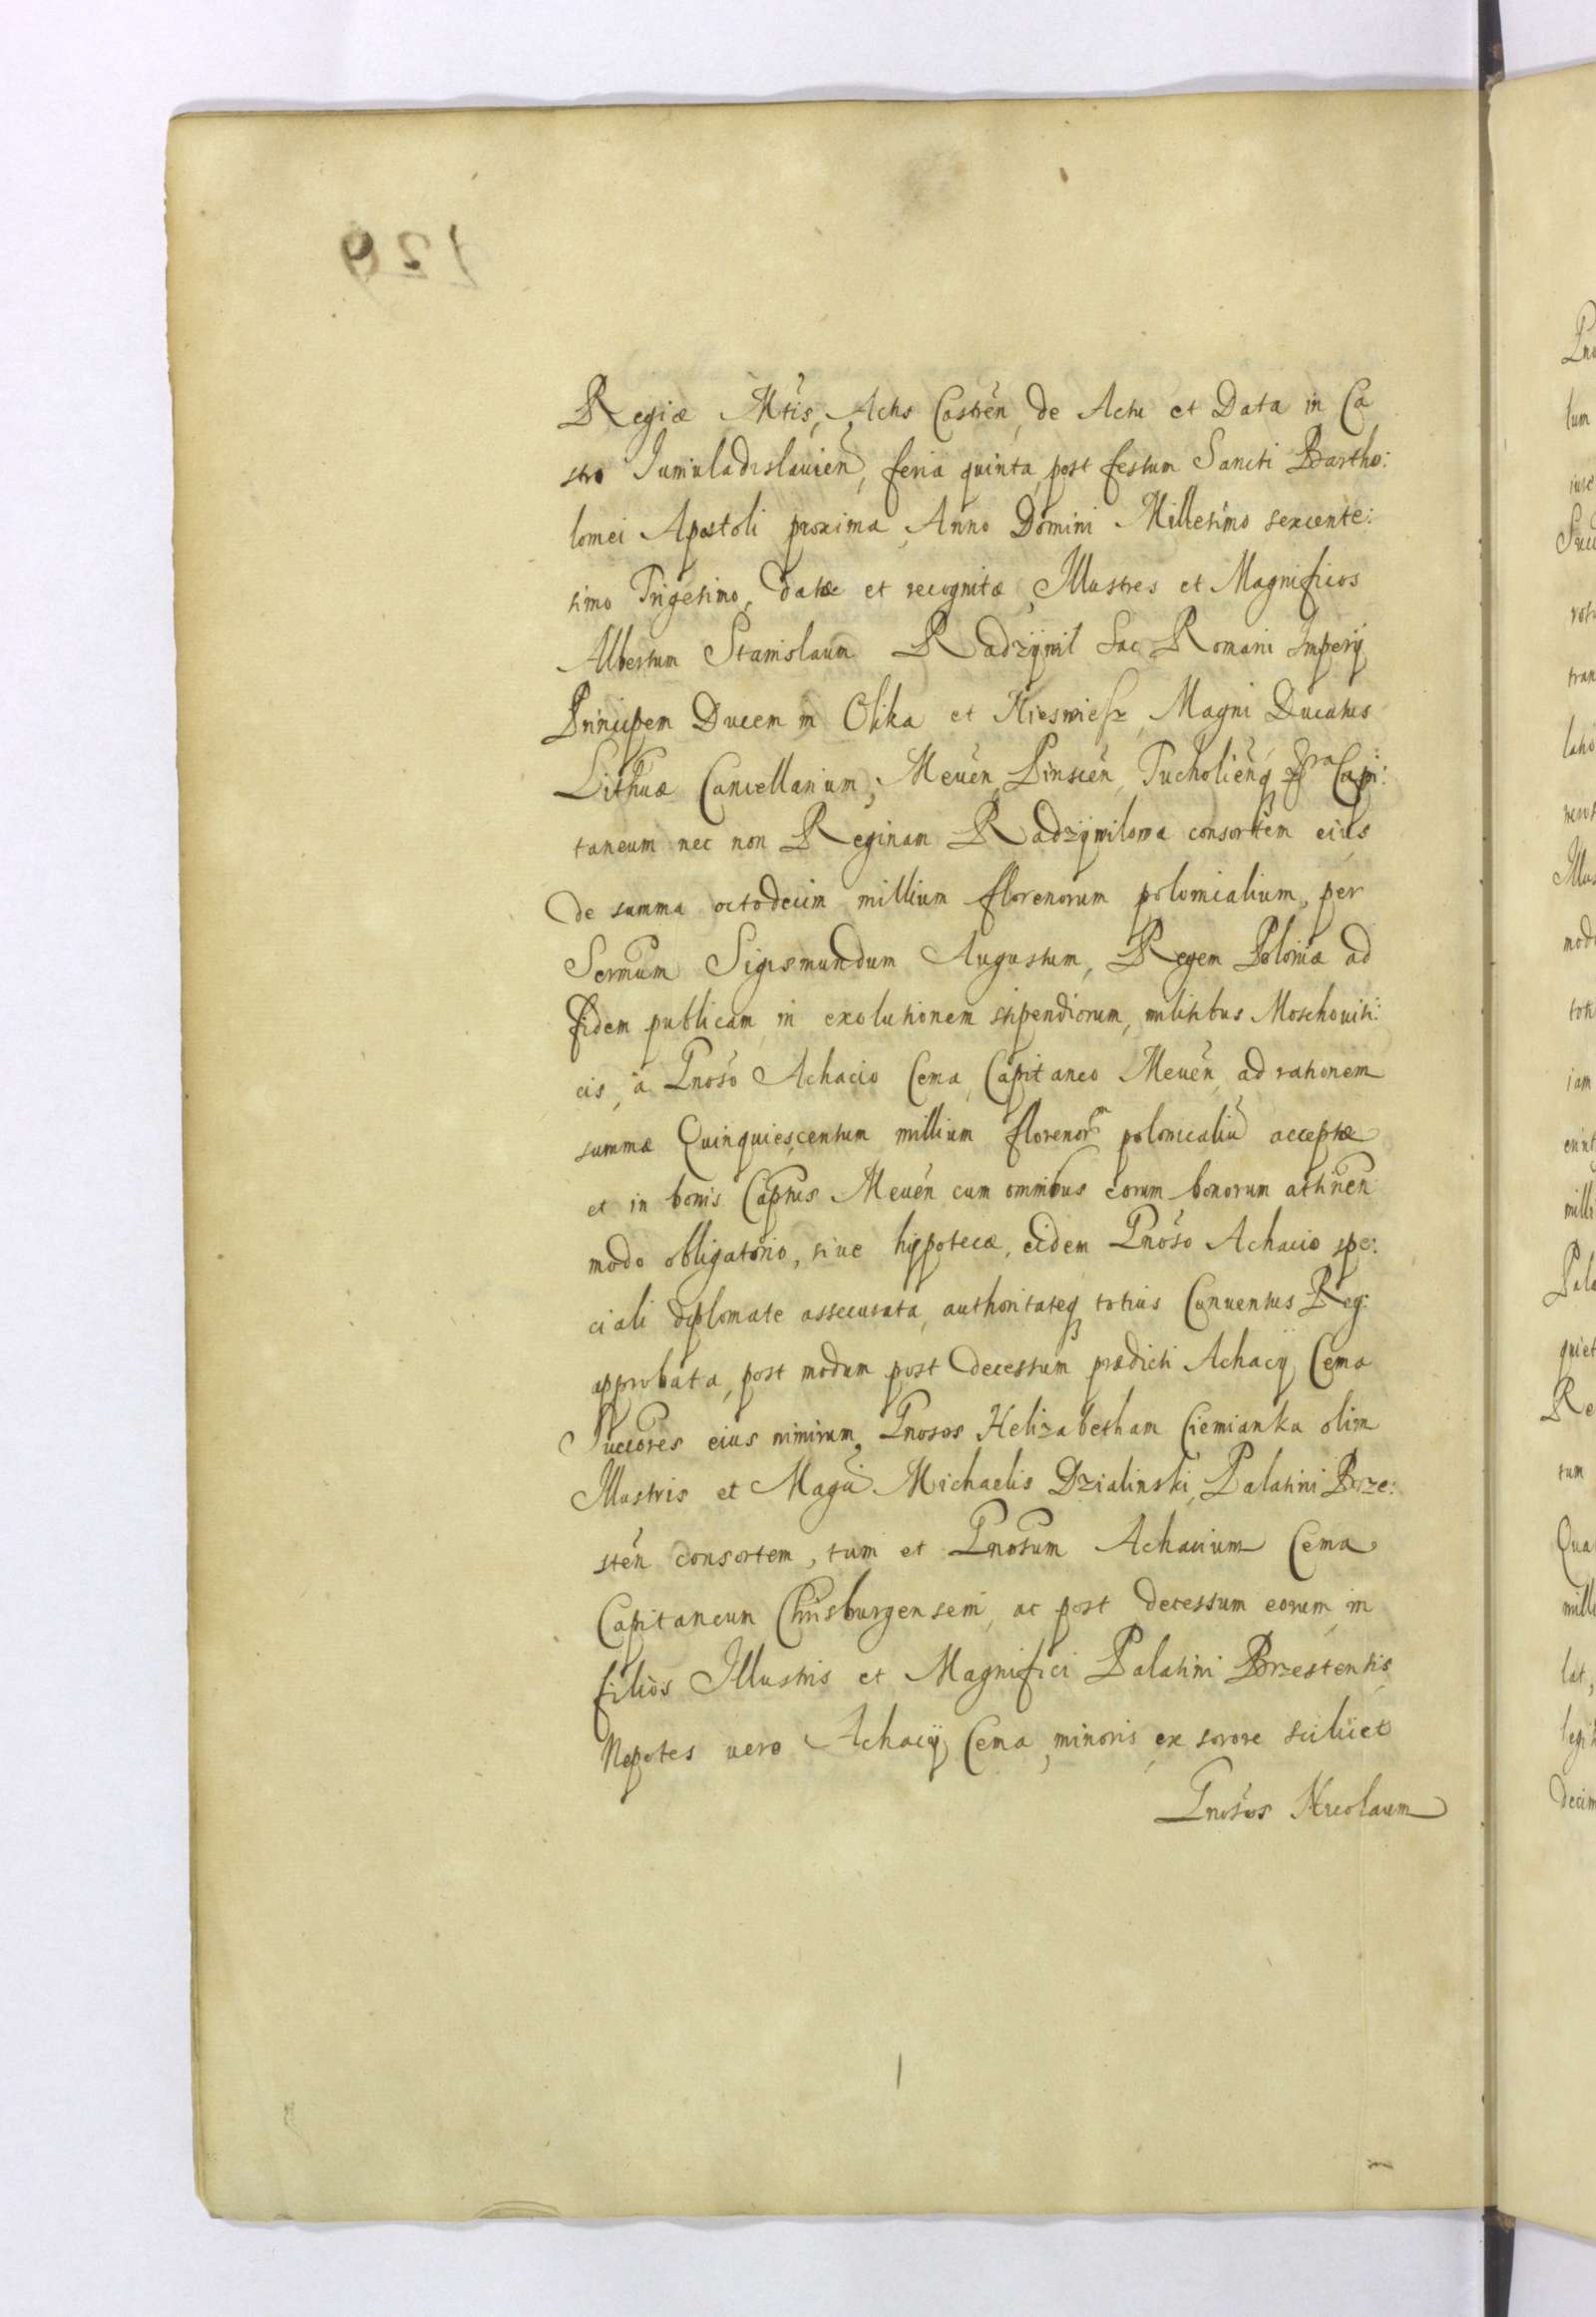 129
Regiæ Mtis, Actis Castren, de Actu et Data in Ca
stro Iuniuladislauien, feria quinta, post festum Sancti Bartho:
lomei Apostoli proxima, Anno Domini Millesimo sexcente:
simo Trigesimo, datæ et recognitæ, Illustres et Magnificos
Albertum Stanislaum Radzÿwil Sac Romani Imperÿ
Principem Ducem in Olika et Nieswiesz, Magni Ducatus
Lithuæ Cancellarium, Meuen, Pinscen, Tucholienq Capi:
taneum nec non Reginam Radzÿwilowa consortem eius
de summa octodecim millium florenorum polonicalium, per
Sermum Sigismundum Augustum, Regem Poloniæ ad
fidem publicam in exolutionem stipendiorum, militibus Moschouiti:
cis, a Gnoso Achacio Cema, Capitaneo Meuen, ad rationem
summæ Quinquiescentum millium florenor polonicaliu acceptæ
et in bonis Captus Meuen cum omnibus eorum bonorum attinen
modo obligatorio, siue hÿpotecæ, eidem Gnoso Achacio spe:
ciali diplomate assecurata, authoritateq totius Conuentus Reg:
approbata, post modum post decessum prædicti Achacÿ Cema
Succores eius nimirum, Gnosos Helizabetham Ciemianka olim
Illustris et Magci Michaelis Dzialinski, Palatini Brze:
sten consortem, tum et Gnosum Achacium Cema
Capitaneum Chrisburgensem, ac post decessum eorum, in
filios Illustris et Magnifici Palatini Brzestensis
Nepotes vero Achacÿ Cema, minoris, ex sorore scilicet
Gnosos Nicolaum